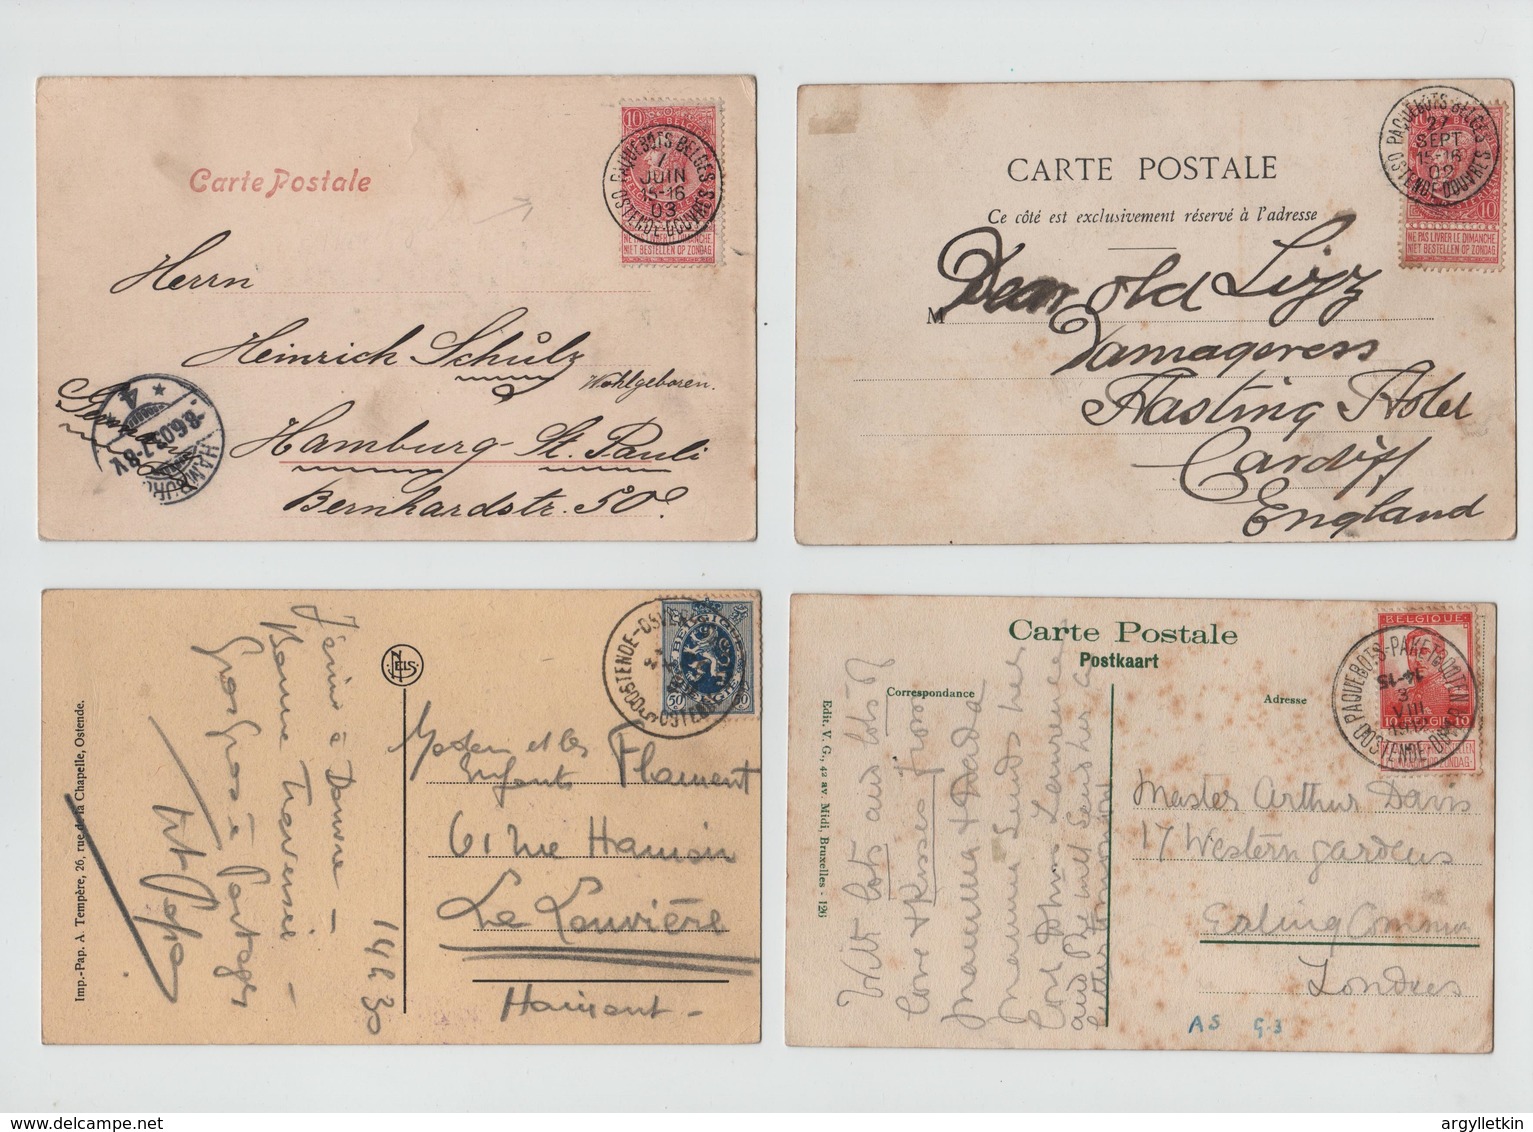 Carte Postale
10
PAQUEBOTS BELGES
7
JUIN
15-16
03
OSTENDE-DOUVRES
NE PAS LIVRER LE DIMANCHE
NIET BESTELLEN OP ZONDAG
Herrn
Heinrich Schulz
Wohlgeboren.
Hamburg St. Pauli
Bernhardstr. 50.
HAMBURG
4
CARTE POSTALE
Ce côté est exclusivement réservé à l'adresse
M
PAQUEBOTS BELGES
27
SEPT
15-16
02
OSTENDE DOUVRES
10
NE PAS LIVRER LE DIMANCHE
NIET BESTELLEN OP ZONDAG
Dear Old Lizz
Manageress
Hasting Hotel
Cardiff
England
Imp.-Pap. A. Tempère, 26, rue de la Chapelle, Ostende.
à Douvre -
Bonne Traversée -
à Partager
Papa
14 h 30
NELS
OSTENDE-
BELGIQUE
50
et les
Enfants Flament
61 rue
La Louvière
Hainaut -
Carte Postale
Postkaart
Correspondance
Adresse
Edit. V. G., 42 av. Midi, Bruxelles - 126
With lots and lots of
love & kisses from
Mamma & Dada
Mamma sends her
love
PAQUEBOTS-PAKETBOOTEN
14-15
VIII
BELGIQUE
10 BELGIË 10
Master Arthur Davis
17 Western gardens
Ealing Common
Londres
AS G.3
argylletkin